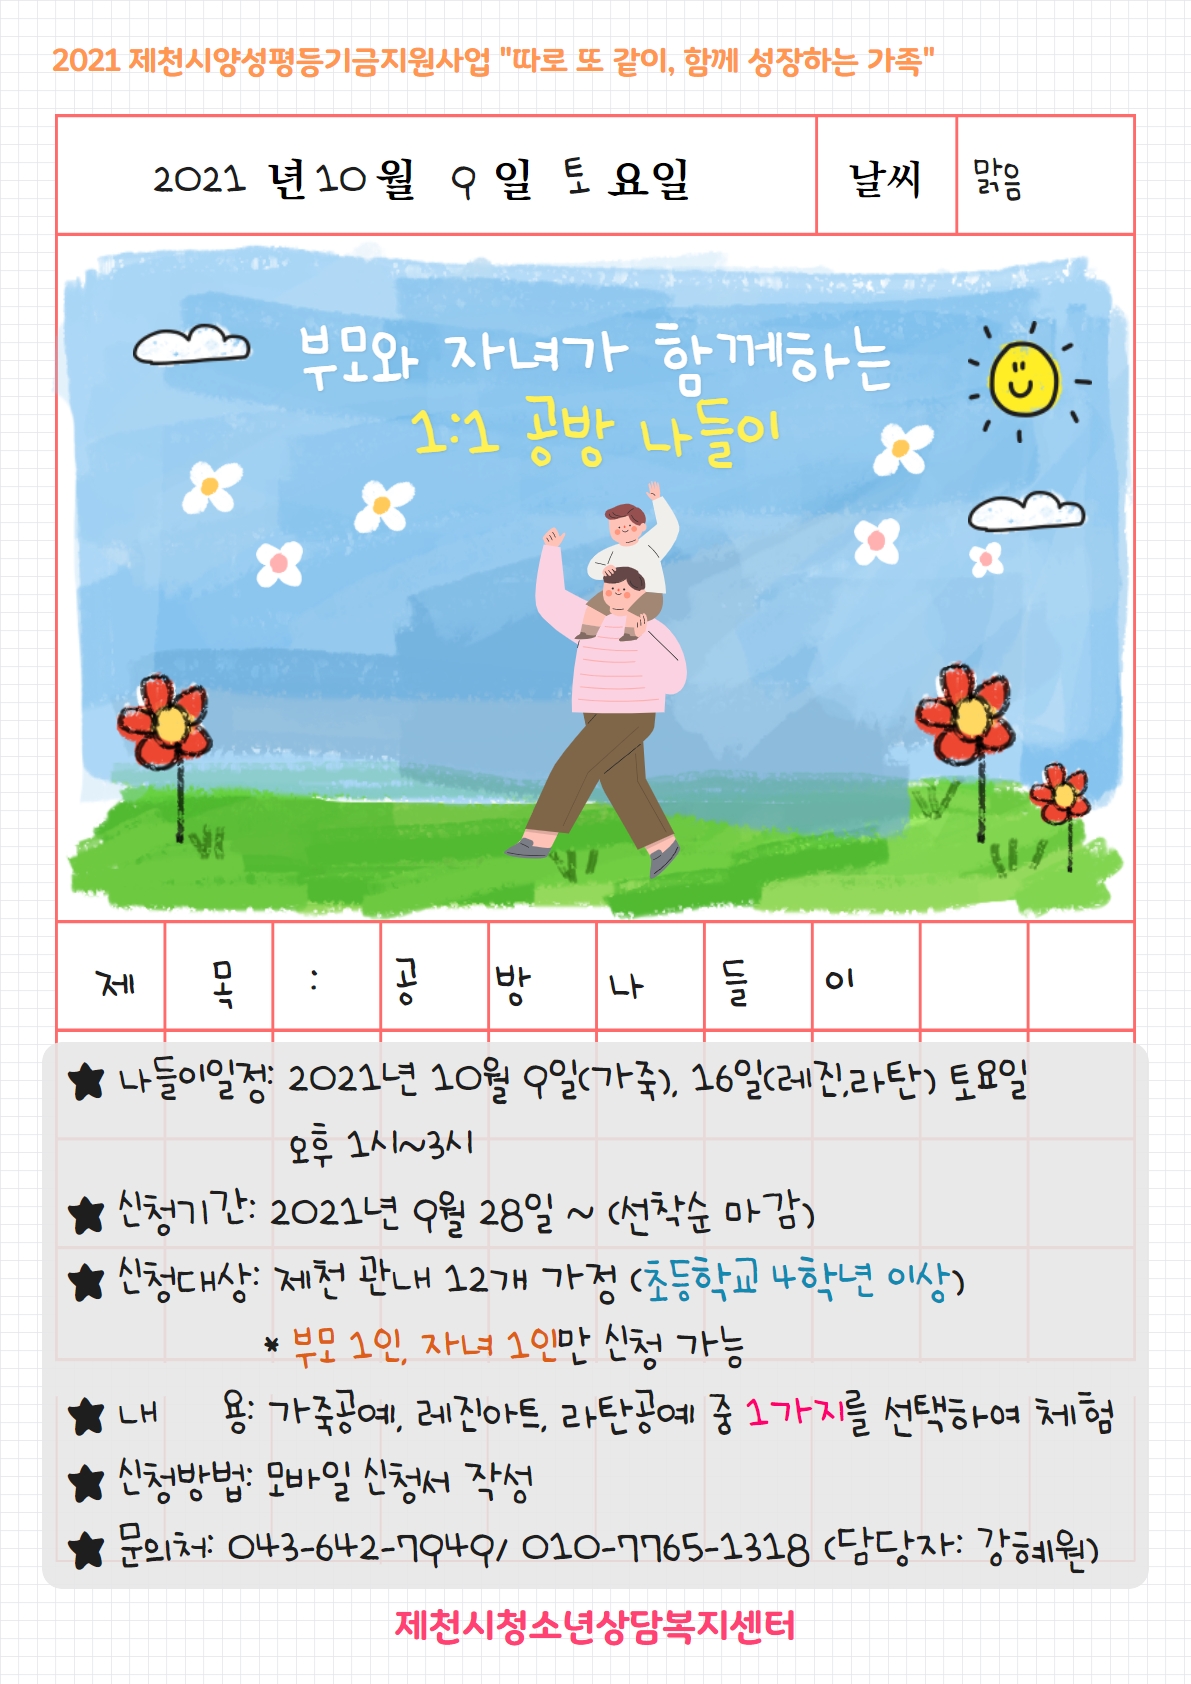 2021 제천시양성평등기금지원사업 "따로 또 같이, 함께 성장하는 가족"
2021 년 10 월 9 일 토 요일 날씨 맑음
부모와 자녀가 함께하는
1:1 공방 나들이
제 목 : 공 방 나 들 이
★ 나들이일정: 2021년 10월 9일(가죽), 16일(레진,라탄) 토요일
오후 1시~3시
★ 신청기간: 2021년 9월 28일 ~ (선착순 마감)
★ 신청대상: 제천 관내 12개 가정 (초등학교 4학년 이상)
* 부모 1인, 자녀 1인만 신청 가능
★ 내 용: 가죽공예, 레진아트, 라탄공예 중 1가지를 선택하여 체험
★ 신청방법: 모바일 신청서 작성
★ 문의처: 043-642-7949/ 010-7765-1318 (담당자: 강혜원)
제천시청소년상담복지센터